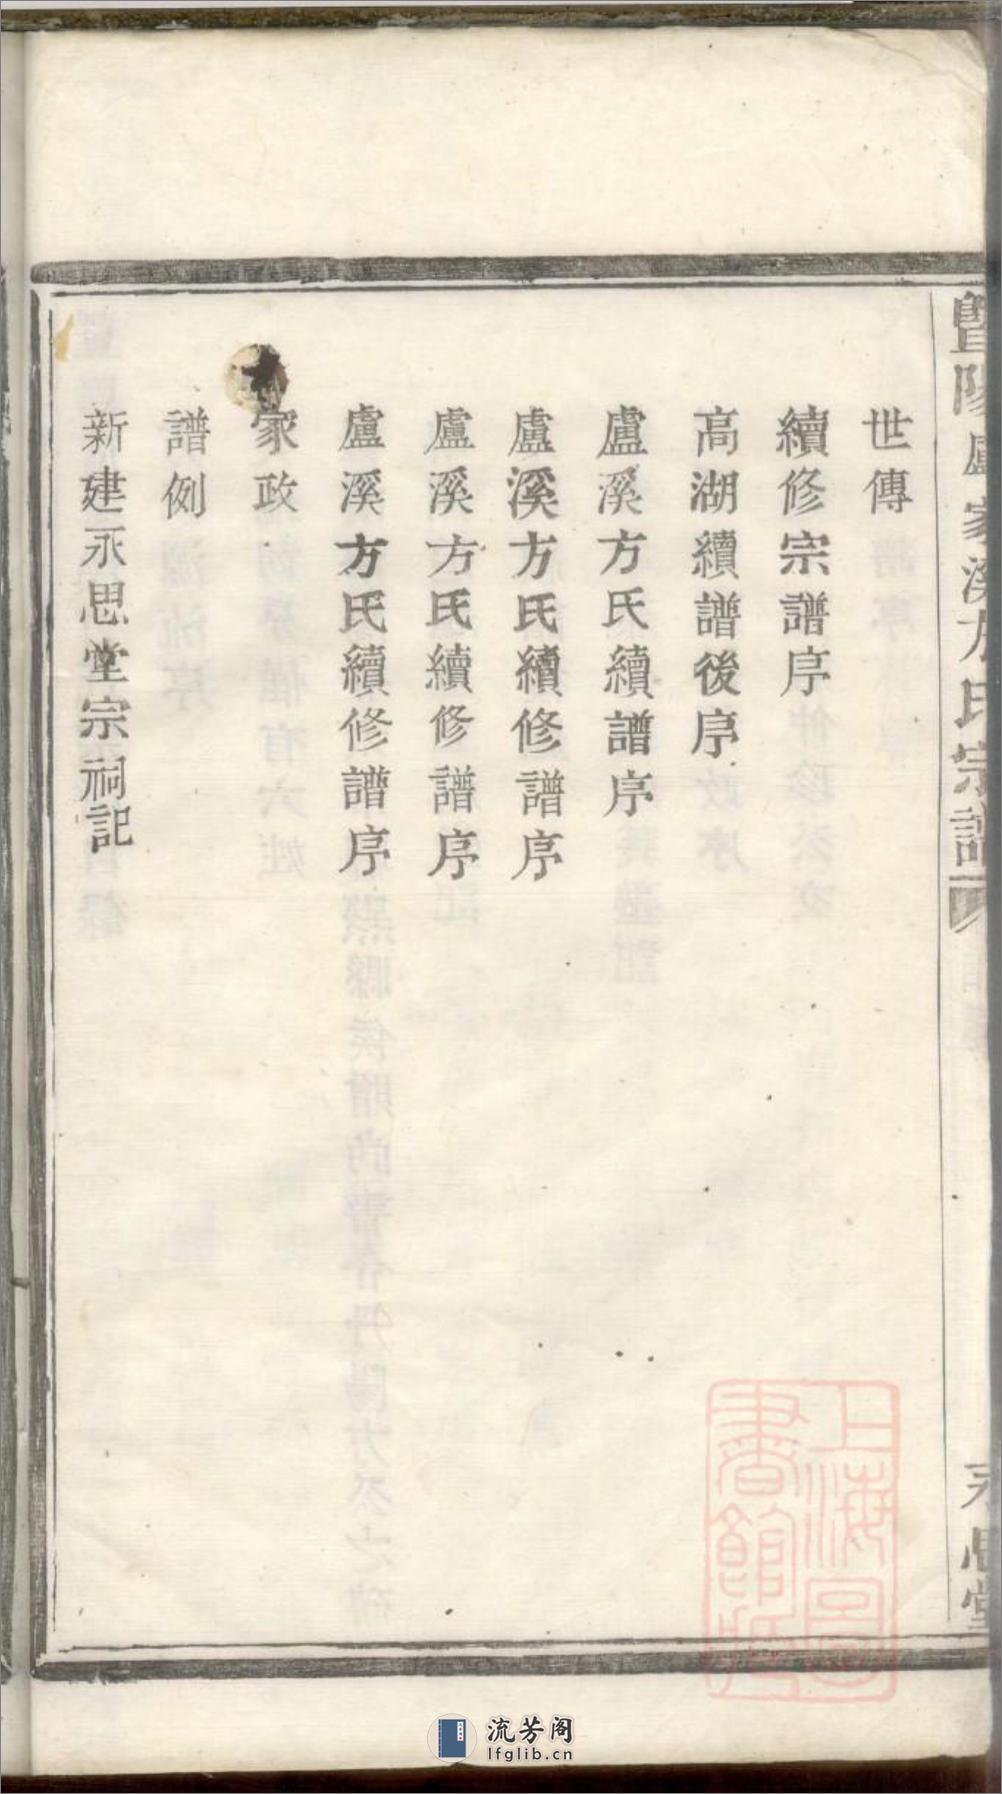 暨陽盧家溪方氏宗譜
永思堂
世傳
續修宗譜序
高湖續譜後序
盧溪方氏續譜序
盧溪方氏續修譜序
盧溪方氏續修譜序
盧溪方氏續修譜序
家政
譜例
新建永思堂宗祠記
上海圖
書館藏
流芳阁
lfglib.cn